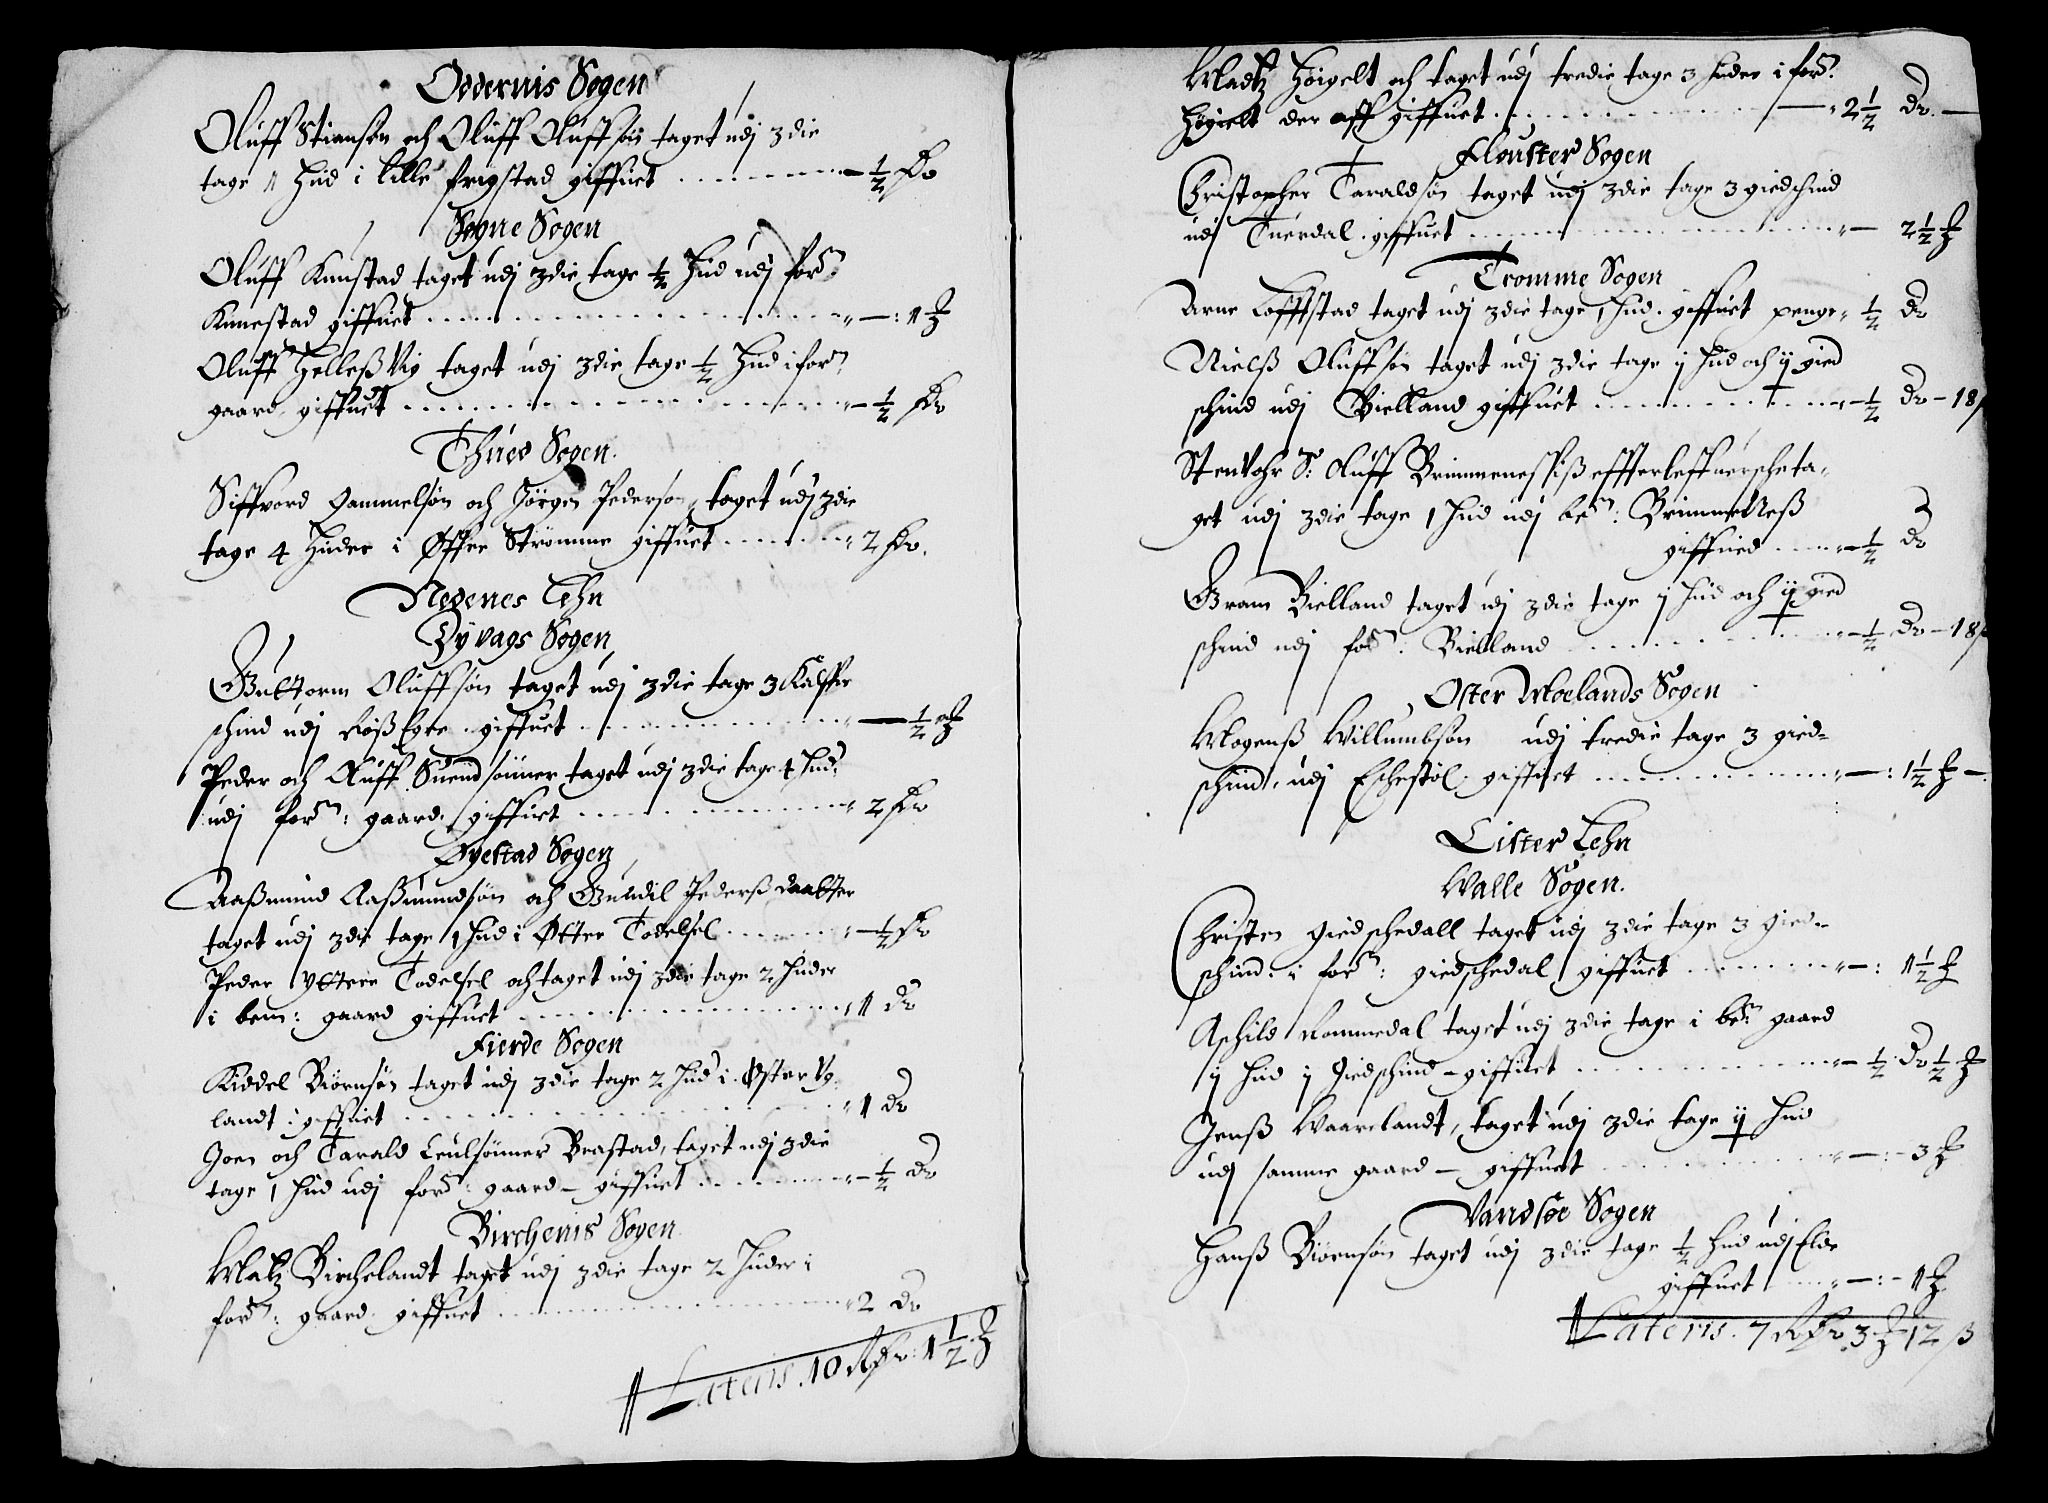 Oddernis Sogen
Oluff Stiansøn och Oluff Oluffsøn taget udj 3die
tage 1 Hud i lille frigstad giffuet - ½ Dr
Sogne Sogen
Oluff Kunstad taget udj 3die tage ½ Hud udj for:ne
Kunestad giffuet - : 1
Oluff Hellesvig taget udj 3die tage ½ Hud i for:ne
gaard giffuet - ½ Dr
Thued Sogen.
Siffvord Gammelsøn och Jørgen Pedersøn, taget udj 3die
tage 4 Huder i Øffre Strømme giffuet 2 Dr.
Nedenes Lehn
Dyvags Sogen
Guttorm Oluffsøn taget udj 3die tage 3 Kalff
schind udj giffuet - ½
Peder och Oluff Suendsønner taget udj 3die tage 4 Hud:
udj for:ne: gaard giffuet 2 Dr
Øyestad Sogen
Aaßmund Aaßmundsøn och Gundil Pederß daatter
taget udj 3die tage 1 Hud i Øttre Todelsel - ½ Dr
Peder Yttere Todelsel och taget udj 3die tage 2 Huder
i bem: gaard giffuet 1 Dr
Fierde Sogen
Kiddel Biørnsøn taget udj 3die tage 2 Hud i Øster Ug
landt giffuet 1 Dr
Joen och Tarald Leulsønner Brastad, taget udj 3die
tage 1 Hud udj for:ne: gaard - giffuet - ½ Dr
Birchenis Sogen
Matz Birchelandt taget udj 3die tage 2 Huder i
for:ne: gaard giffuet 2 Dr
Lateris. 10 Rdr: 1½
Madtz Høigelt och taget udj tredie tage 3 Huder i for:ne
Høgielt der aff giffuet - 2½ Dr. -
Flouster Sogen
Christopher Taraldsøn taget udj 3die tage 3 giedschind
udj Tuerdal giffuet - 2½
Tromme Sogen
Arne Lofftstad taget udj 3die tage 1 Hud. giffuet penge ½ Dr
Nielß Oluffsøn taget udj 3die tage ij Hud och ij gied
schind udj Bielland giffuet - ½ Dr - 18 ß
Sten Vohr S: Oluff Brimmenesßiß effterleffuersche ta-
get udj 3die tage 1 Hud udj be:ne: Brimmeneß
giffued - ½ Dr
Gram Bielland taget udj 3die tage j Hud och ij gied
schind udj for:ne: Bielland - ½ Dr - 18 ß
Øster Moelands Sogen
Mogenß Willumbsøn udj tredie tage 3 gied-
schind, udj Eschestøl. giffuet - : 1½ -
Lister Lehn
Walle Sogen.
Christen Giedschedall taget udj 3die tage 3 gied-
schind i for:ne: giedschedal giffuet - : 1½
Aschild Rommedal taget udj 3die tage i be:ne gaard
ij Hud ij Giedschind - giffuet - ½ Dr ½
Jenß Waarelandt, taget udj 3die tage ij Hud
udj samme gaard - giffuet - : - 3
Vandsøe Sogen
Hanß Biørnsøn taget udj 3die tage ½ Hud udj Elde
giffuet - : - 1
Lateris. 7 Rdr 3 12 ß